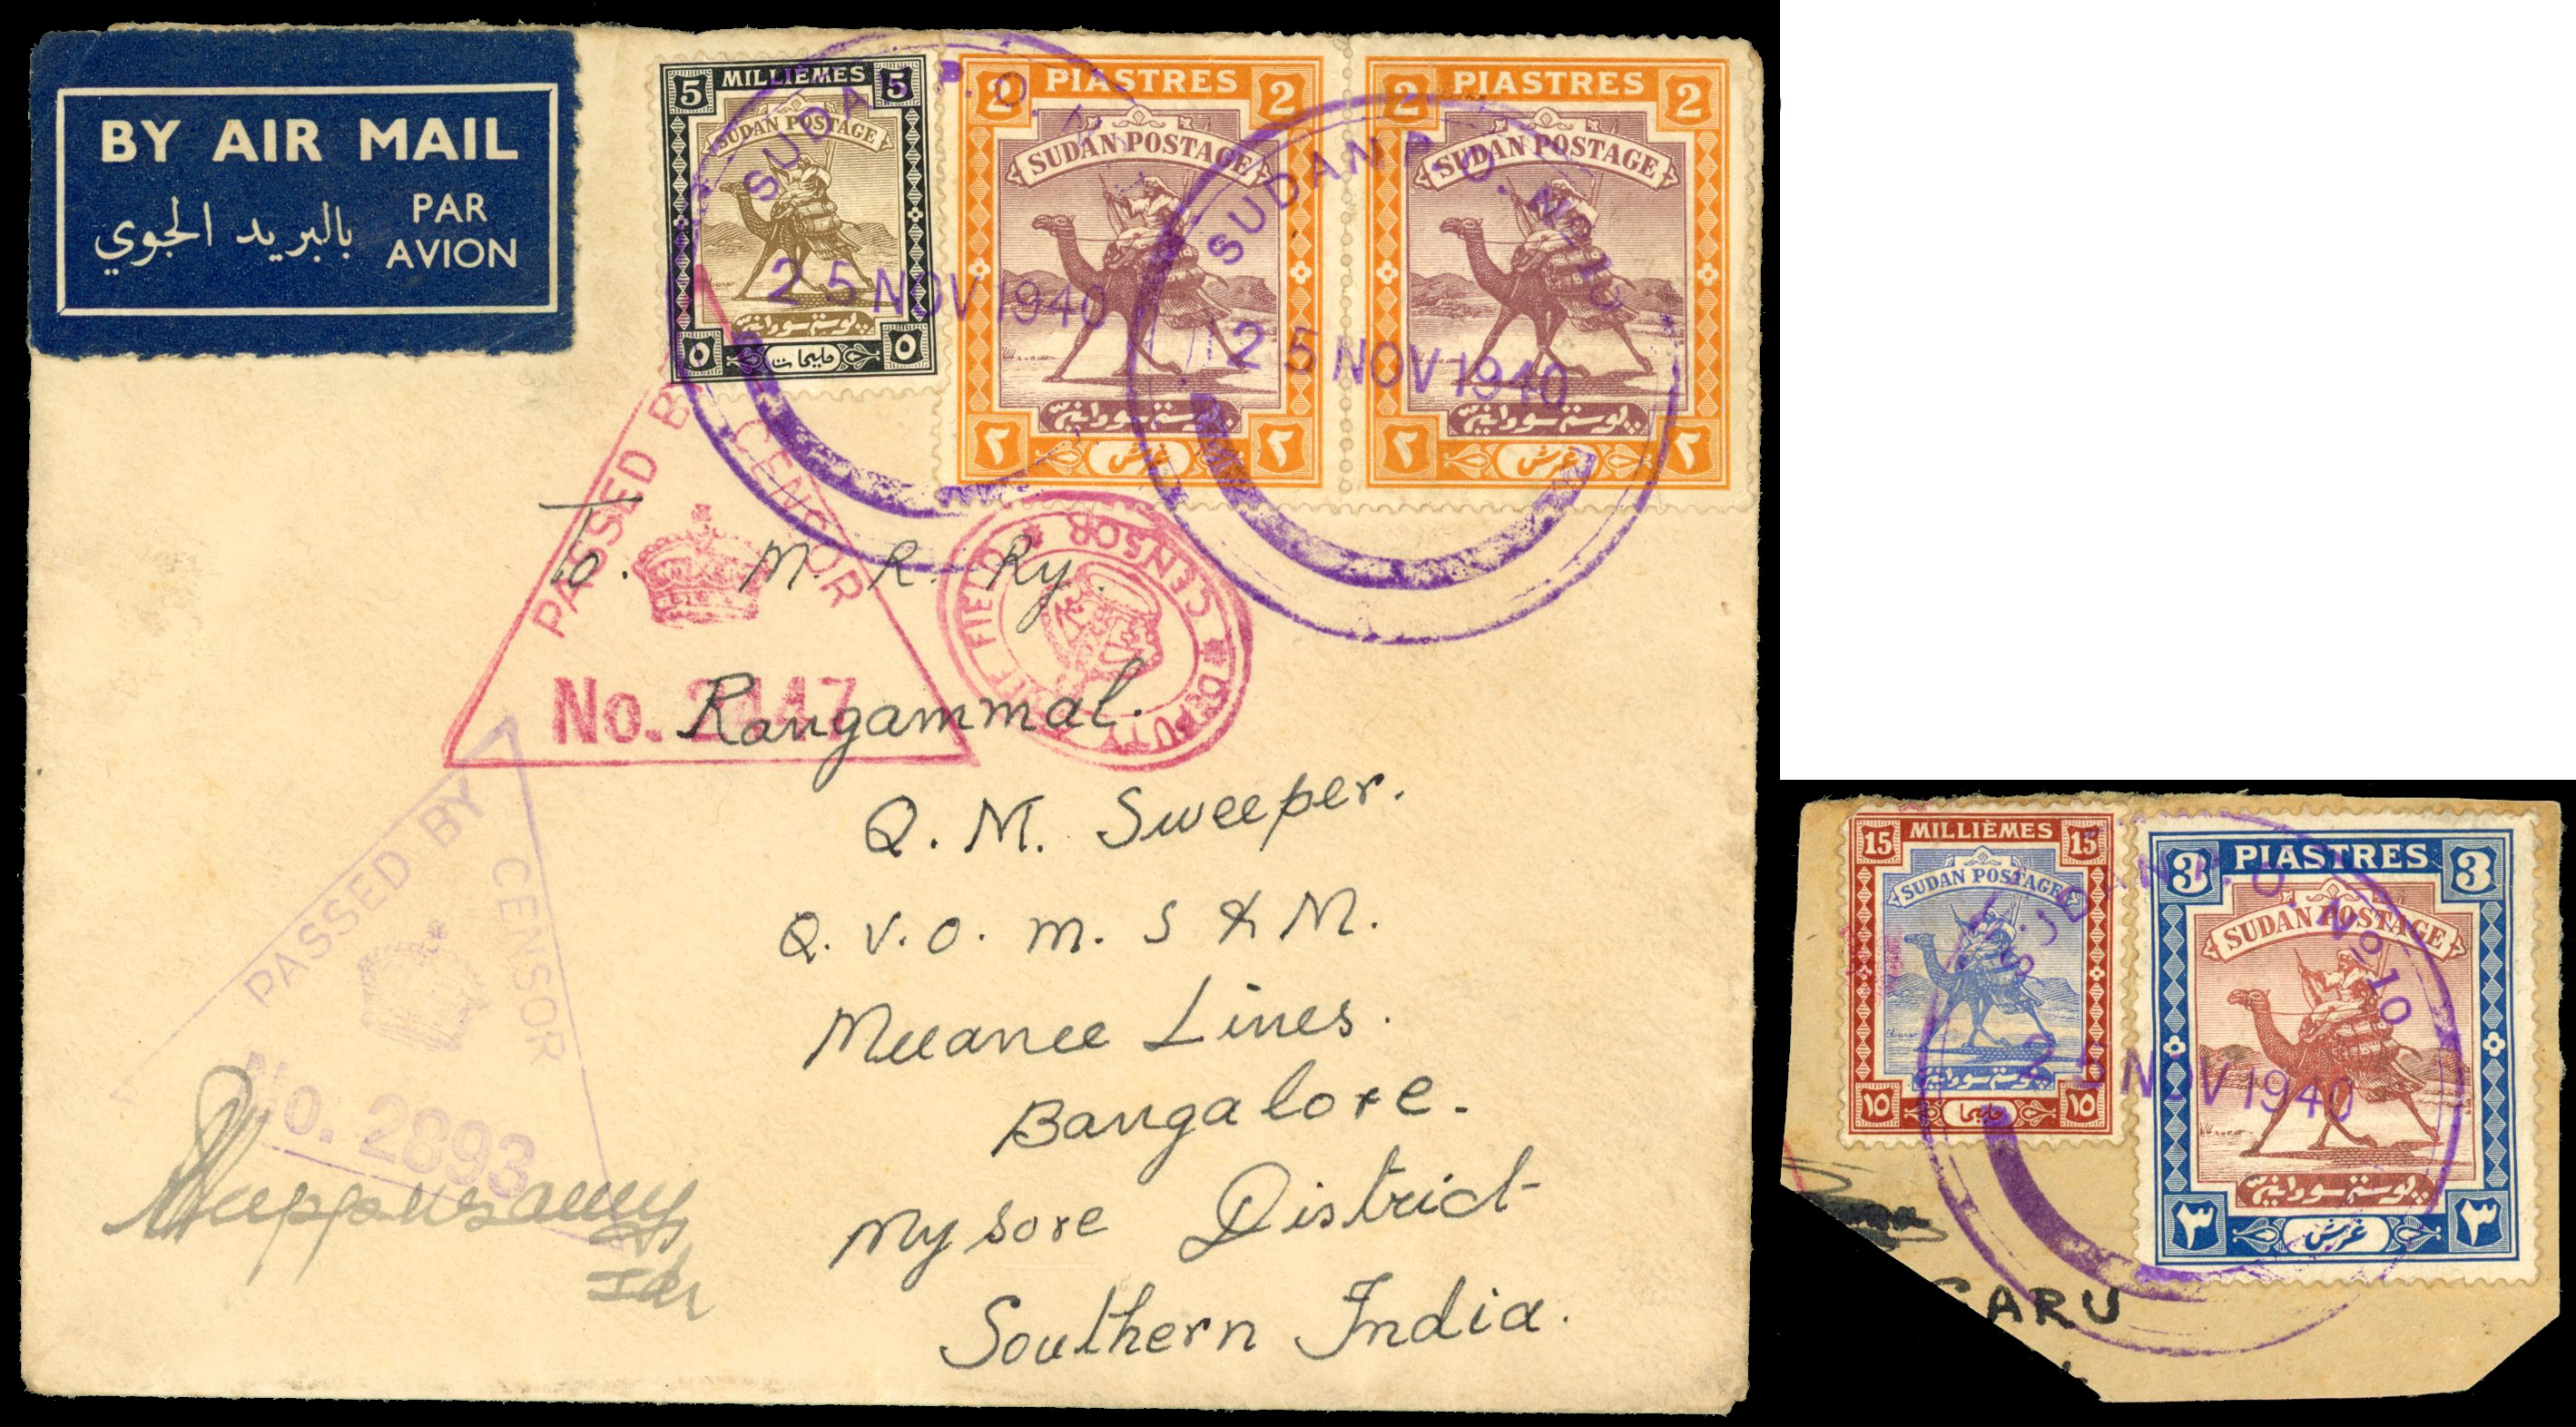 BY AIR MAIL
بالبريد الجوي
PAR
AVION
5 MILLIEMES 5
SUDAN POSTAGE
بوستة سودانية
٥ مليمات ٥
2 PIASTRES 2
SUDAN POSTAGE
بوستة سودانية
٢ غرش ٢
2 PIASTRES 2
SUDAN POSTAGE
بوستة سودانية
٢ غرش ٢
SUDAN P.O. N
25 NOV 1940
SUDAN P.O. No 10
25 NOV 1940
PASSED BY CENSOR
No. 2447
DEPUTY CHIEF FIELD CENSOR
To. M. R. Ry.
Rangammal.
Q. M. Sweeper.
Q. V. O. M. S & M.
Meeanee Lines.
Bangalore.
Mysore District
Southern India.
PASSED BY CENSOR
No. 2893
15 MILLIÈMES 15
SUDAN POSTAGE
بوستة سودانية
١٥ مليما ١٥
3 PIASTRES 3
SUDAN POSTAGE
بوستة سودانية
٣ غرش ٣
SUDAN P.O. No 10
25 NOV 1940
GARU